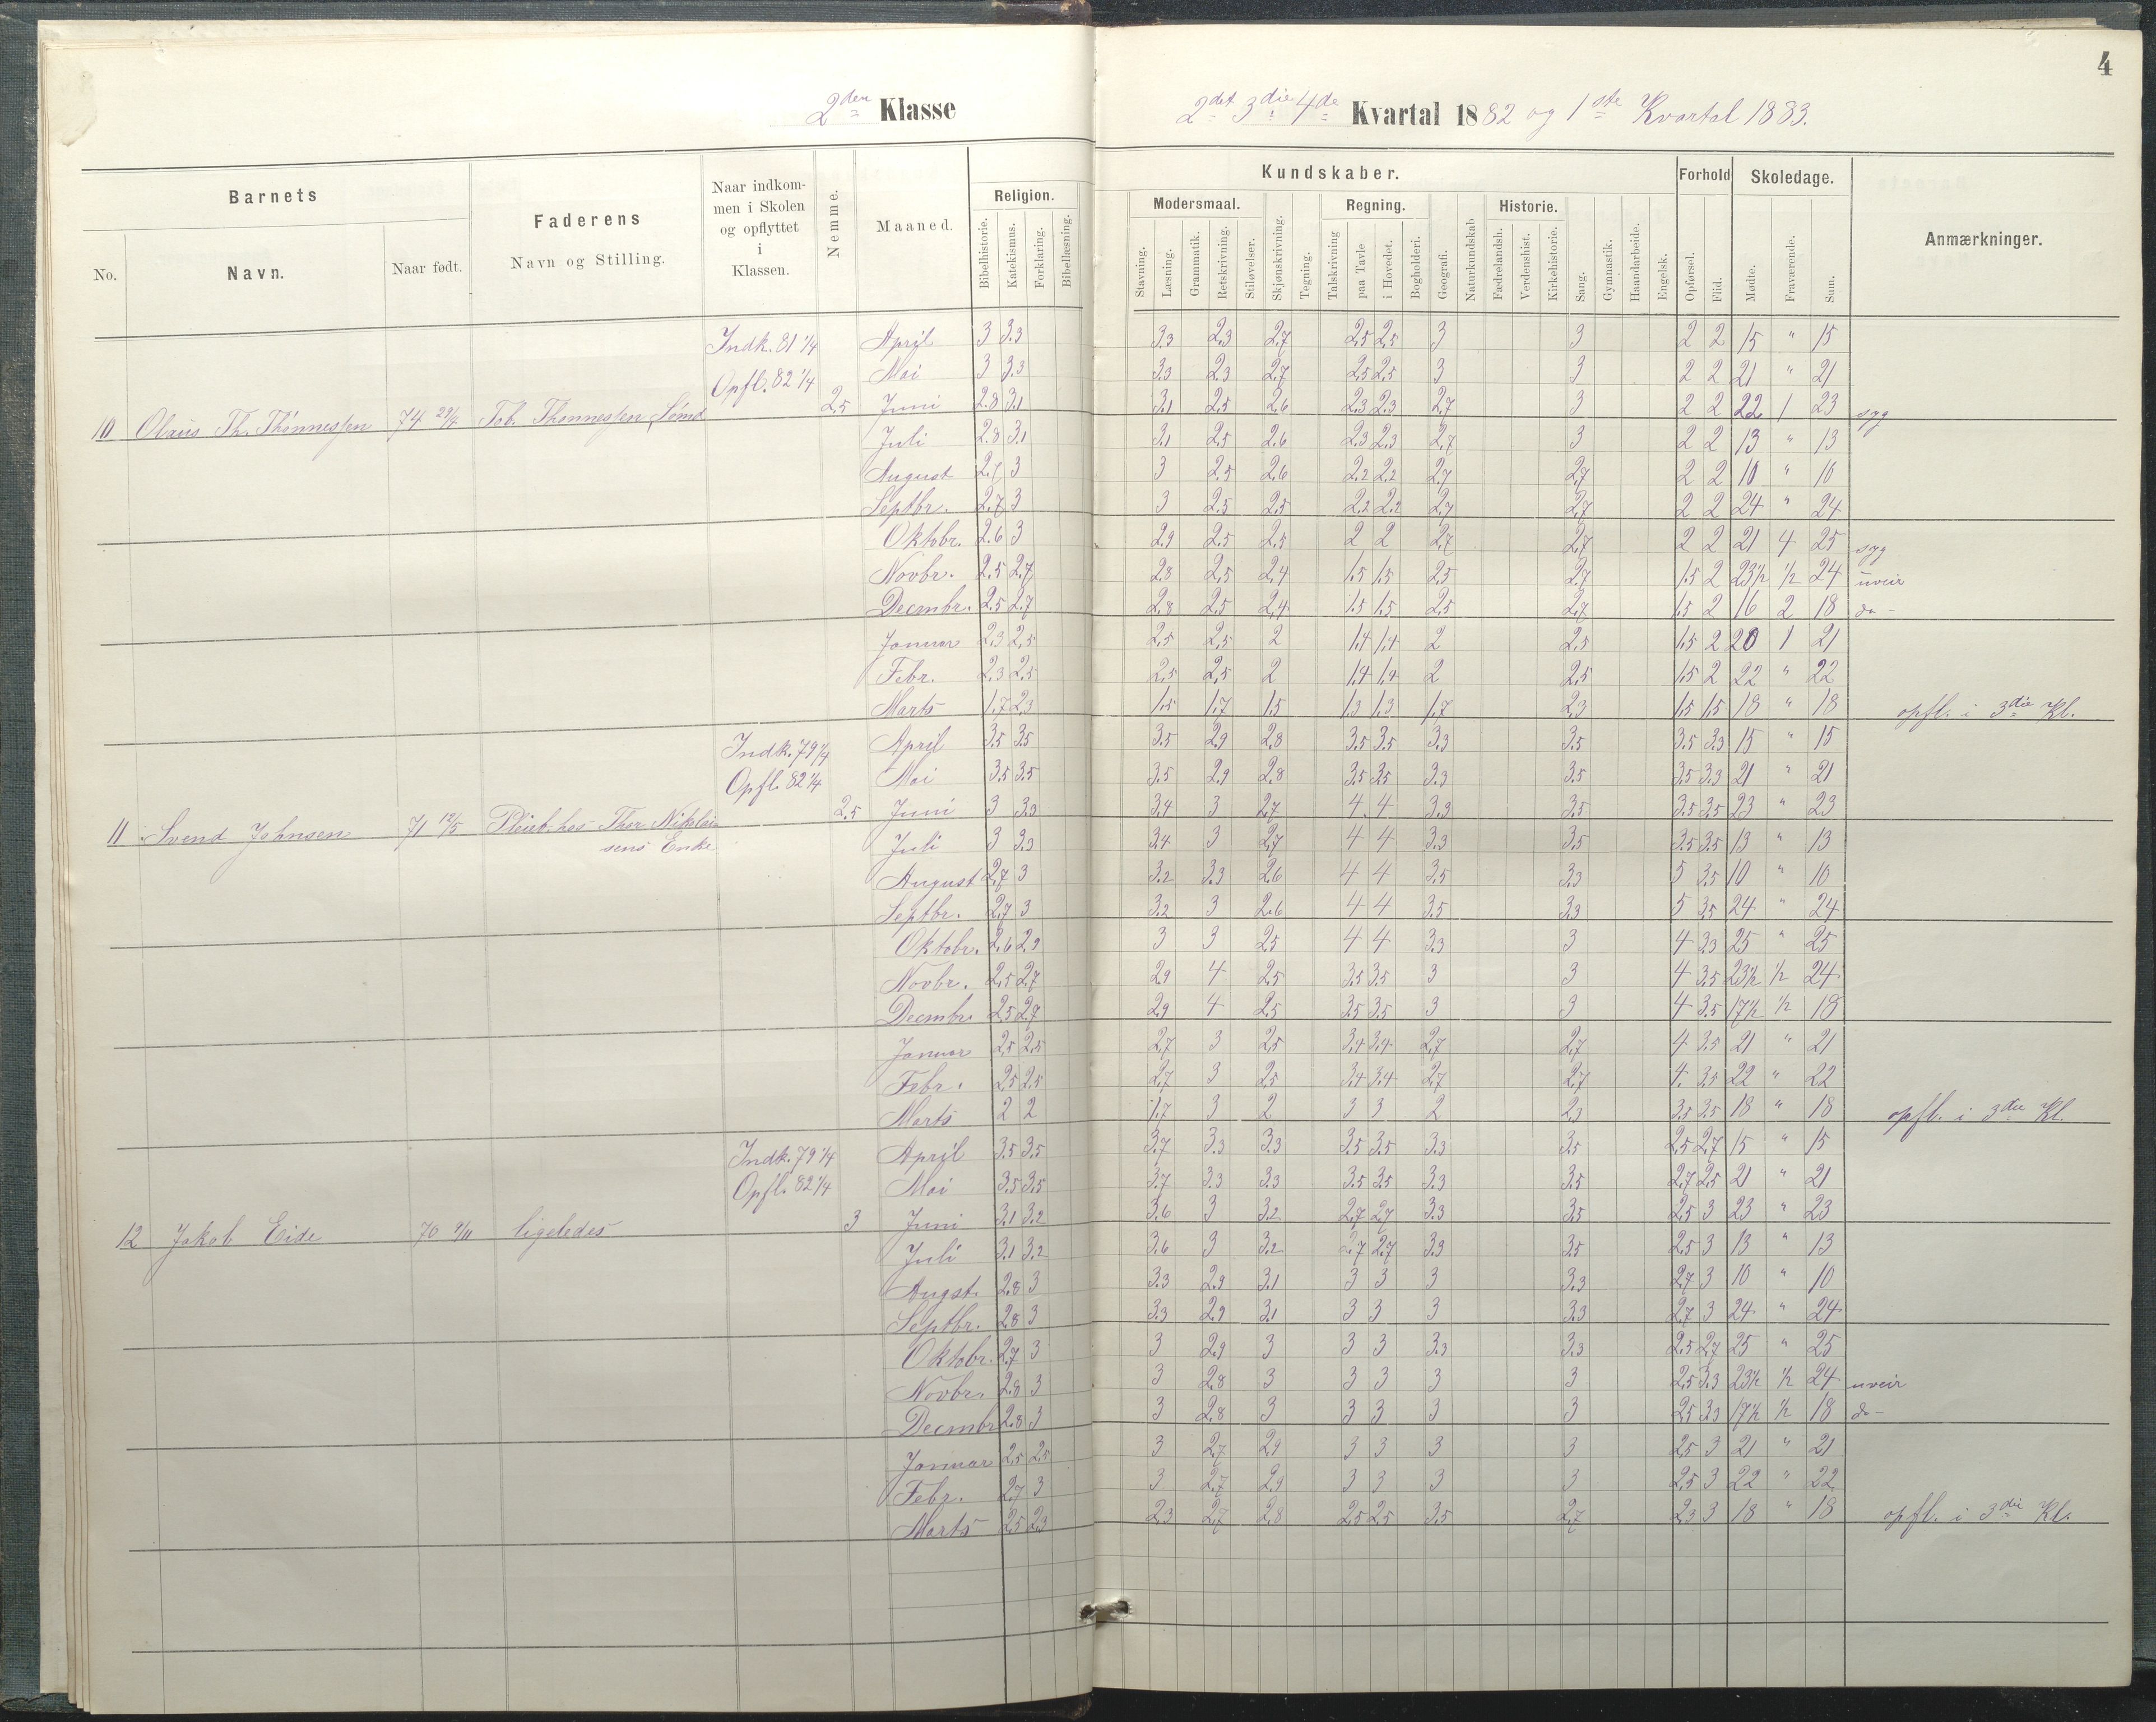 4
2den Klasse 2det 3die 4de Kvartal 1882 og 1ste Kvartal 1883.
Barnets Faderens Naar indkommen i Skolen og opflyttet i Klassen. Nemme. Maaned. Religion. Kundskaber. Forhold Skoledage. Anmærkninger.
No. Navn. Naar født. Navn og Stilling. Bibelhistorie. Katekismus. Forklaring. Bibellæsning. Modersmaal. Regning. Historie.
Stavning. Læsning. Grammatik. Retskrivning. Stiløvelser. Skjønskrivning. Tegning. Talskrivning paa Tavle i Hovedet. Bogholderi. Geografi. Naturkundskab Fædrelandsh. Verdenshist. Kirkehistorie. Sang. Gymnastik. Haandarbeide. Engelsk. Opførsel. Flid. Mødte. Fraværende. Sum.
Indk. 81 1/4 April 3 3.3 3.3 2.3 2.7 2.5 2.5 3 3 2 2 15 " 15
Opfl. 82 1/4 Mai 3 3.3 3.3 2.3 2.7 2.5 2.5 3 3 2 2 21 " 21
10 Olaus Th. Thönnessen 74 Tob. Thönnessen 2.5 Juni 2.8 3.1 3.1 2.5 2.6 2.3 2.3 2.7 3 2 2 22 1 23 syg
Juli 2.8 3.1 3.1 2.5 2.6 2.3 2.3 2.7 3 2 2 13 " 13
August 2.7 3 3 2.5 2.6 2.2 2.2 2.7 2.7 2 2 10 " 10
Septbr. 2.7 3 3 2.5 2.5 2.2 2.2 2.7 2.7 2 2 24 " 24
Oktobr. 2.6 3 2.9 2.5 2.5 2 2 2.7 2.7 2 2 21 4 25 syg
Novbr. 2.5 2.7 2.8 2.5 2.4 1.5 1.5 2.5 2.7 1.5 2 23 1/2 1/2 24 uveir
Decmbr. 2.5 2.7 2.8 2.5 2.4 1.5 1.5 2.5 2.7 1.5 2 16 2 18 do -
Januar 2.3 2.5 2.5 2.5 2 1.4 1.4 2 2.5 1.5 2 20 1 21
Febr. 2.3 2.5 2.5 2.5 2 1.4 1.4 2 2.5 1.5 2 22 " 22
Marts 1.7 2.3 1.5 1.7 1.5 1.3 1.3 1.7 2.3 1.5 1.5 18 " 18 opfl. i 3die Kl.
Indk. 79 1/4 April 3.5 3.5 3.5 2.9 2.8 3.5 3.5 3.3 3.5 3.5 3.3 15 " 15
Opfl. 82 1/4 Mai 3.5 3.5 3.5 2.9 2.8 3.5 3.5 3.3 3.5 3.5 3.3 21 " 21
11 Svend Johnsen 71 12/5 Pleieb. hos Thor Nikolai- 2.5 Juni 3 3.3 3.4 3 2.7 4 4 3.3 3.5 3.5 3.5 23 " 23
sens Enke Juli 3 3.3 3.4 3 2.7 4 4 3.3 3.5 3.5 3.5 13 " 13
August 2.7 3 3.2 3.3 2.6 4 4 3.5 3.3 5 3.5 10 " 10
Septbr. 2.7 3 3.2 3 2.6 4 4 3.5 3.3 5 3.5 24 " 24
Oktobr. 2.6 2.9 3 3 2.5 4 4 3.3 3 4 3.3 25 " 25
Novbr. 2.5 2.7 2.9 4 2.5 3.5 3.5 3 3 4 3.5 23 1/2 1/2 24
Decmbr 2.5 2.7 2.9 4 2.5 3.5 3.5 3 3 4 3.5 17 1/2 1/2 18
Januar 2.5 2.5 2.7 3 2.5 3.4 3.4 2.7 2.7 4 3.5 21 " 21
Febr. 2.5 2.5 2.7 3 2.5 3.4 3.4 2.7 2.7 4. 3.5 22 " 22
Marts 2 2 1.7 3 2 3 3 2 2.3 3.5 3.5 18 " 18 opfl. i 3die Kl.
Indk. 79 1/4 April 3.5 3.5 3.7 3.3 3.3 3.5 3.5 3.3 3.5 2.5 2.7 15 " 15
Opfl. 82 1/4 Mai 3.5 3.5 3.7 3.3 3.3 3.5 3.5 3.3 3.5 2.7 2.5 21 " 21
12 Jakob Eide 70 9/11 ligeledes 3 Juni 3.1 3.2 3.6 3 3.2 2.7 2.7 3.3 3.5 2.5 3 23 " 23
Juli 3.1 3.2 3.6 3 3.2 2.7 2.7 3.3 3.5 2.5 3 13 " 13
Augst. 2.8 3 3.3 2.9 3.1 3 3 3 3.3 2.7 3 10 " 10
Septbr. 2.8 3 3.3 2.9 3.1 3 3 3 3.3 2.7 3 24 " 24
Oktobr. 2.7 3 3 2.9 3 3 3 3.3 3.3 2.5 2.7 25 " 25
Novbr. 2.8 3 3 2.8 3 3 3 3 3 2.5 3.3 23 1/2 1/2 24 uveir
Decmbr 2.8 3 3 2.8 3 3 3 3 3 2.5 3.3 17 1/2 1/2 18 do -
Januar 2.5 2.5 3 2.7 2.9 3 3 3 3 2.5 3 21 " 21
Febr. 2.7 3 3 2.7 2.9 3 3 3 3 2.5 3 22 " 22
Marts 2.5 2.3 2.3 2.7 2.8 2.5 2.5 3.5 2.7 2.3 3 18 " 18 opfl. i 3die Kl.